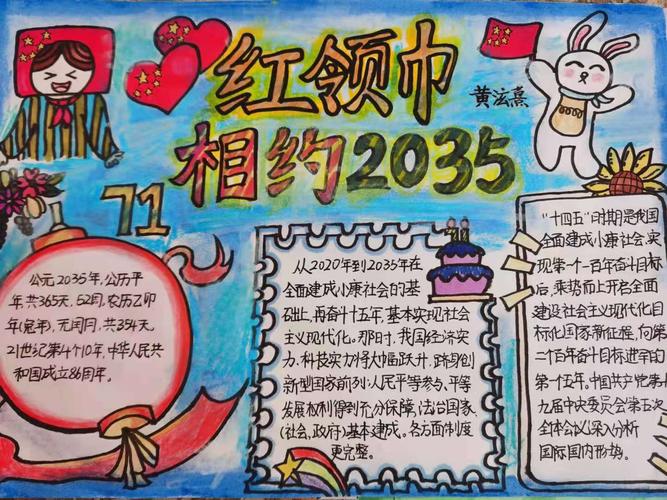 红领巾
相约2035
黄泫熹
71
公元2035年,公历平
年,共365天,52周,农历乙卯
年(兔年),无闰月,共354天。
21世纪第4个10年,中华人民共
和国成立86周年。
从2020年到2035年在
全面建成小康社会的基
础上,再奋斗十五年,基本实现社会
主义现代化。那时,我国经济实
力、科技实力将大幅跃升,跻身创
新型国家前列:人民平等参与、平等
发展权利得到充分保障,法治国家
(社会,政府)基本建成。各方面制度
更完整。
“十四五”时期是我国
全面建成小康社会,实
现第一个一百年奋斗目标
后,乘势而上开启全面
建设社会主义现代化目
标化国家新征程,向第
二个百年奋斗目标进军的
第一个五年。中国共产党第十
九届中央委员会第五次
全体会议深入分析
国际国内形势。